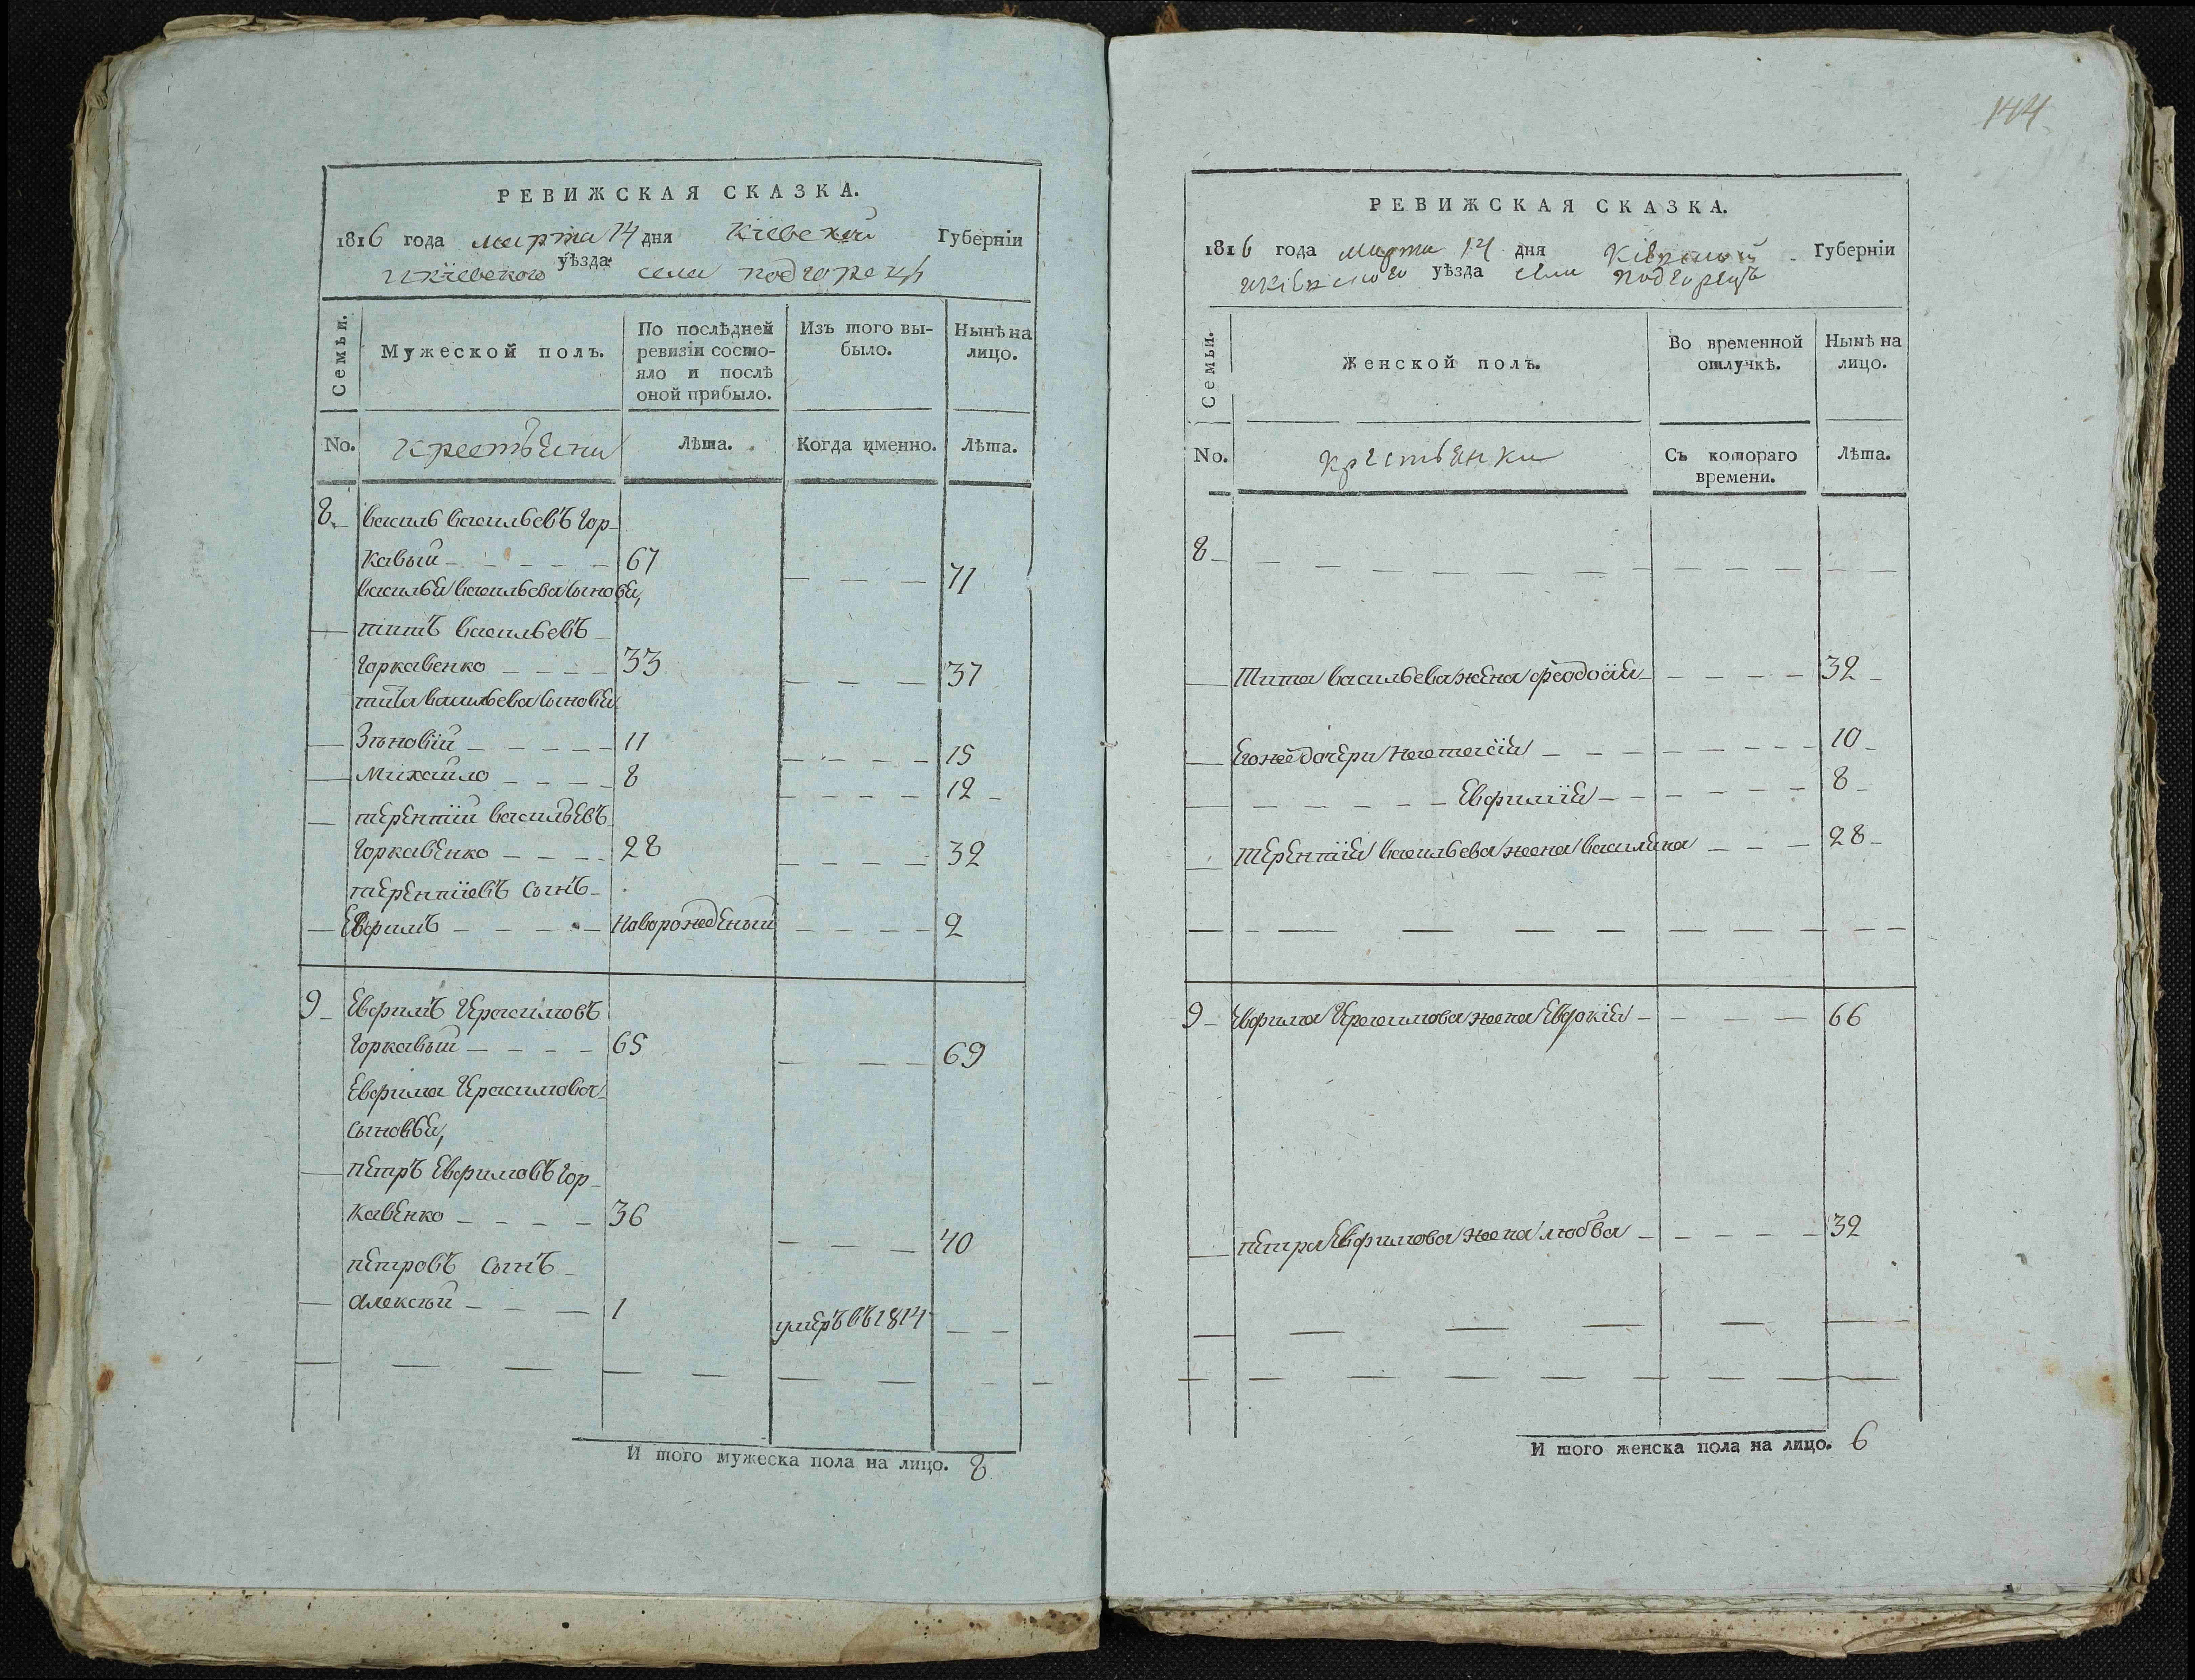 РЕВИЖСКАЯ СКАЗКА.
1816 года марта 14 дня Кіевской Губерніи
и кіевского уѣзда села подгорецъ
Семьи.
Мужеской полъ.
По послѣдней ревизіи состояло и послѣ оной прибыло.
Изъ того выбыло.
Нынѣ на лицо.
No. крестьяни Лѣта. Когда именно. Лѣта.
8. василь васильевъ Гор
кавый 67 71
василья васильева сыновья,
титъ васильевъ
Горкавенко 33 37
тита васильева сыновья
Зѣновій 11 15
михайло 8 12
терентій васильевъ
Горкавенко 28 32
терентіевъ сынъ
Евфимъ Наворожденый 2
9 Евфимъ Герасимовъ
Горкавый 65 69
Евфима Герасимова
сыновья,
петръ Евфимовъ Гор
кавенко 36 40
петровъ сынъ
алексѣй 1 умеръ въ 1814
И того мужеска пола на лицо. 8
144
РЕВИЖСКАЯ СКАЗКА.
1816 года марта 14 дня Кіевской Губерніи
и кіевского уѣзда села подгорецъ
Семьи.
Женской полъ.
Во временной отлучкѣ.
Нынѣ на лицо.
No. крестьянки Съ котораго времени. Лѣта.
8
Тита васильева жена феодосія 32
Его же дочери настасія 10
Евфимія 8
терентія васильева жена василина 28
9 Евфима Герасимова жена Евдокія 66
петра Евфимова жена любва 32
И того женска пола на лицо. 6